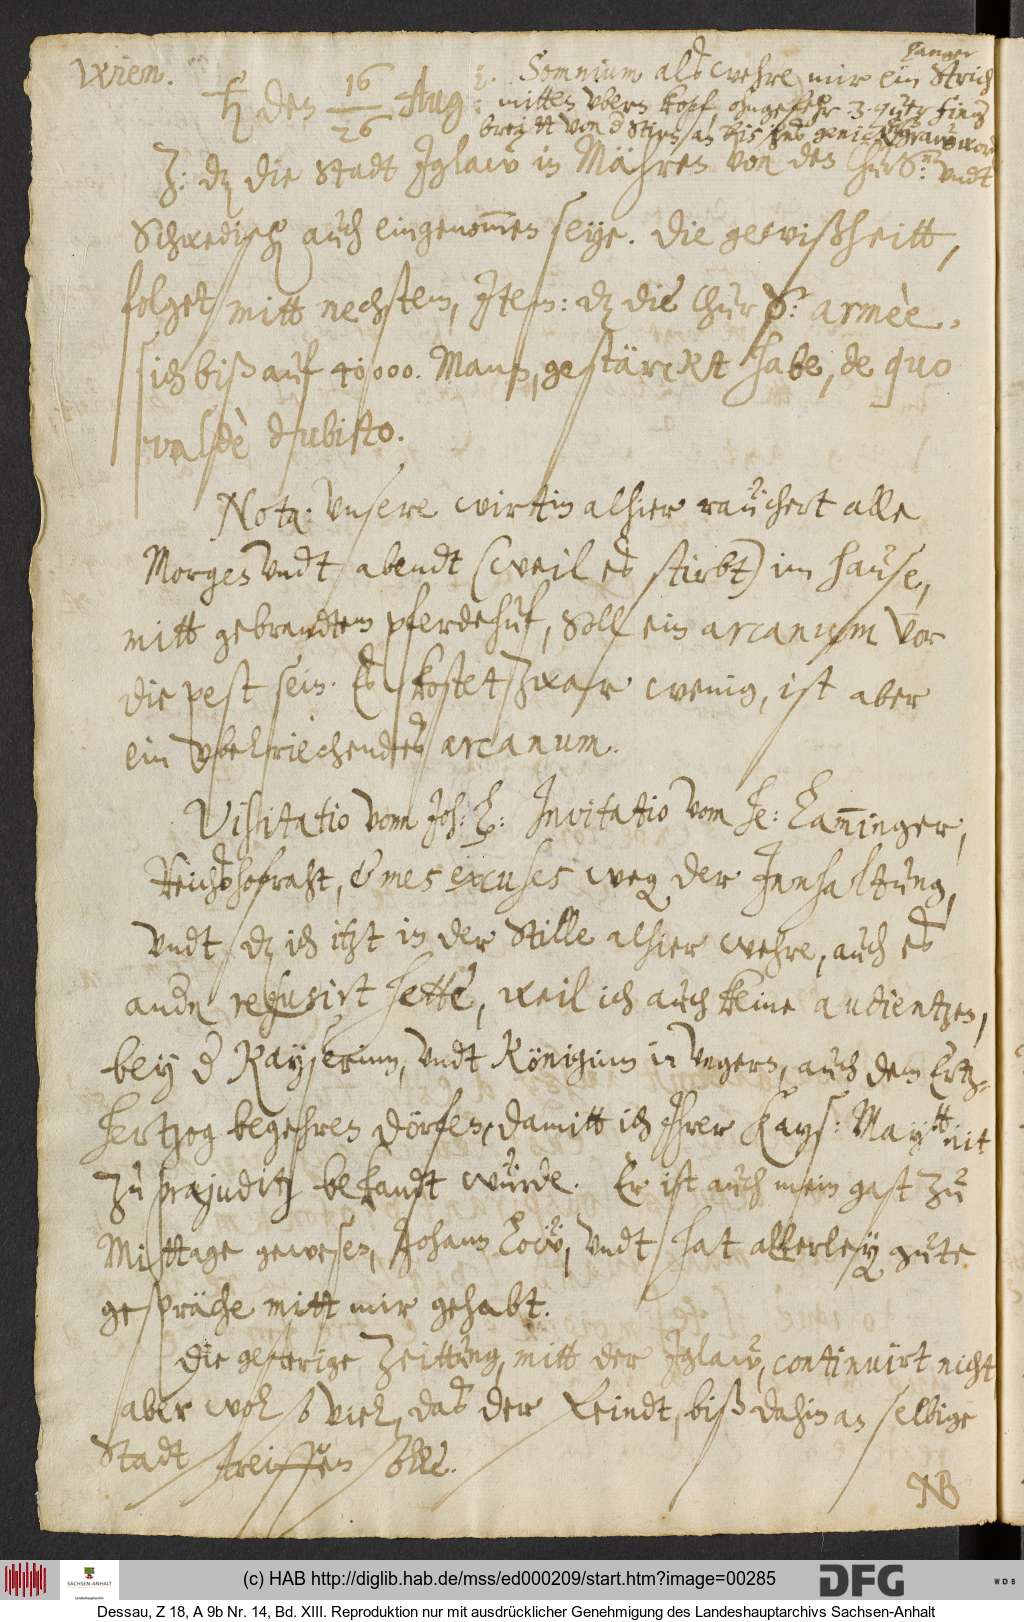 Wien.
♄ den 16/26 Aug: Somnium als wehre mir ein langer Strich
mitten vbern kopf, ohngefehr 3. quer finger
breitt von der Stirn, an biß ins genick
Z: dz die Stadt Iglaw in Mähren von den ChurS:n vndt
Schwedisch auch eingenom̅en seye. Die gewißheitt,
folget mitt nechstem, Item: dz die Chur S: armèe,
sich biß auf 40000. Mann, gestärckt habe, de quo
valdè dubito.
Nota: Vnsere wirtin alhier raüchert alle
Morgen vndt abendt (weil es stirbt) im hause,
mitt gebrandtem pferdehuf, soll ein arcanum vor
die pest sein. Es kostet zwar wenig, ist aber
ein vbelriechendes arcanum.
Visitatio vom Joh: L: Invitatio vom He: Lam̅inger,
Reichshofraht, & mes excuses weg der Innhaltung,
vndt dz ich itzt in der Stille alhier wehre, auch es
andn refusirt hette, weil ich auch keine audientzen,
bey d Kayserinn, vndt Königinn in Vngern, auch dem Ertz-
hertzog begehren dörfen, damitt ich Ihrer Kays: May:tt nit
zu præjuditz bekandt würde. Er ist auch mein gast zu
Mittage gewesen, Johann Löw, vndt hat allerley gute
gespräche mitt mir gehabt.
Die gestrige Zeittung, mitt der Iglaw, continuirt nicht
aber wol so viel, das der Feindt, biß dahin an selbige
Stadt streiffen solle.
NB
(c) HAB http://diglib.hab.de/mss/ed000209/start.htm?image=00285
SACHSEN-ANHALT
DFG
WDB
Dessau, Z 18, A 9b Nr. 14, Bd. XIII. Reproduktion nur mit ausdrücklicher Genehmigung des Landeshauptarchivs Sachsen-Anhalt